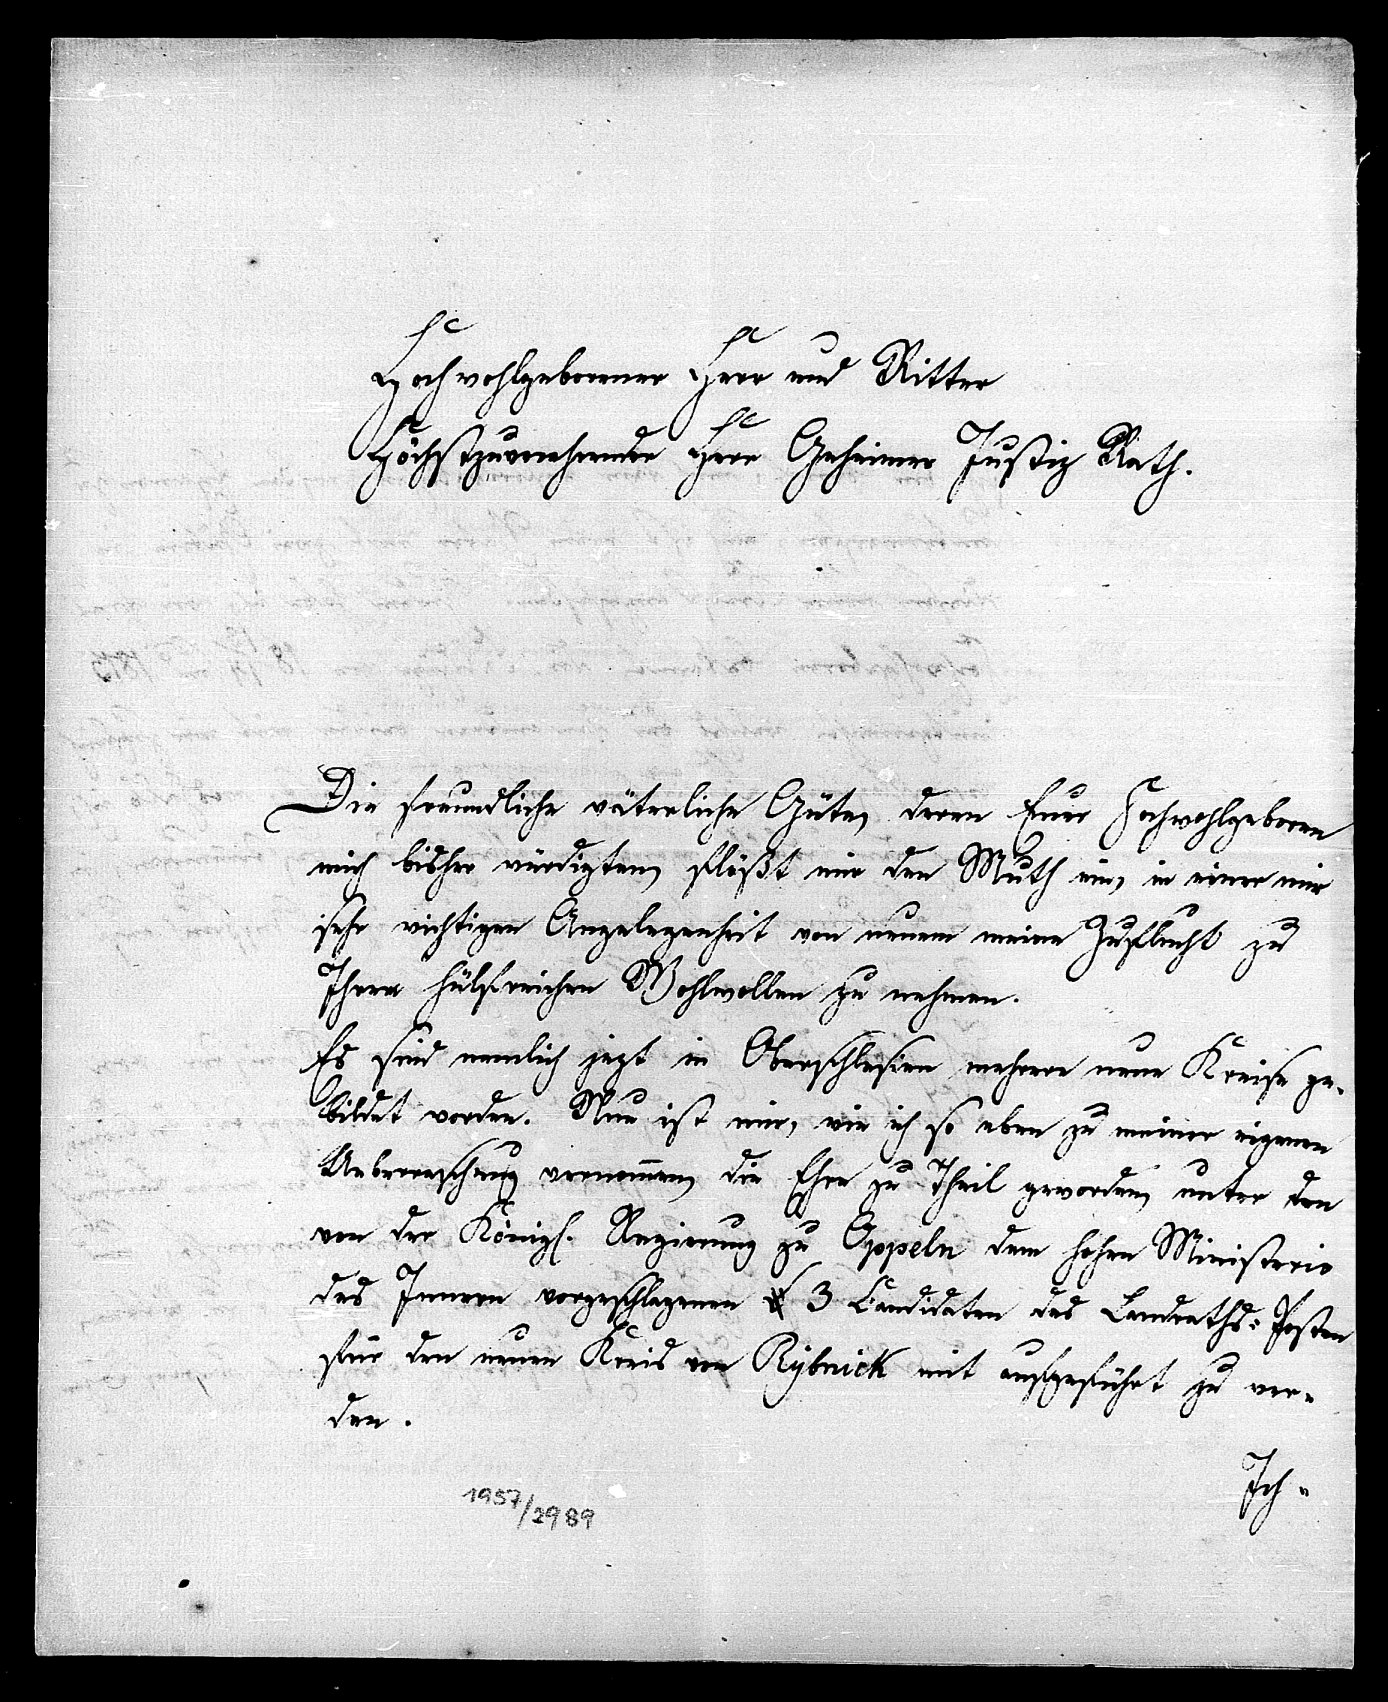 Hochwohlgeborener Herr und Ritter
Höchstzuverehrender Herr Geheimer Justiz Rath.
Die freundliche väterliche Güte, deren Eure Hochwohlgeboren
mich bisher würdigten, flößt mir den Muth ein, in einer mir
sehr wichtigen Angelegenheit von neuem meine Zuflucht zu
Ihrem hülfreichen Wohlwollen zu nehmen.
Es sind nemlich jezt in Oberschlesien mehrere neue Kreise ge-
bildet worden. Nun ist mir, wie ich so eben zu meiner eigenen
Ueberraschung vernommen, die Ehre zu Theil geworden, unter den
von der Königl. Regierung zu Oppeln dem hohen Ministerio
des Innern vorgeschlagenen 3 Candidaten des Landraths-Posten
für den neuen Kreis von Rybnick mit aufgeführt zu wer-
den.
Ich -
1957/2989